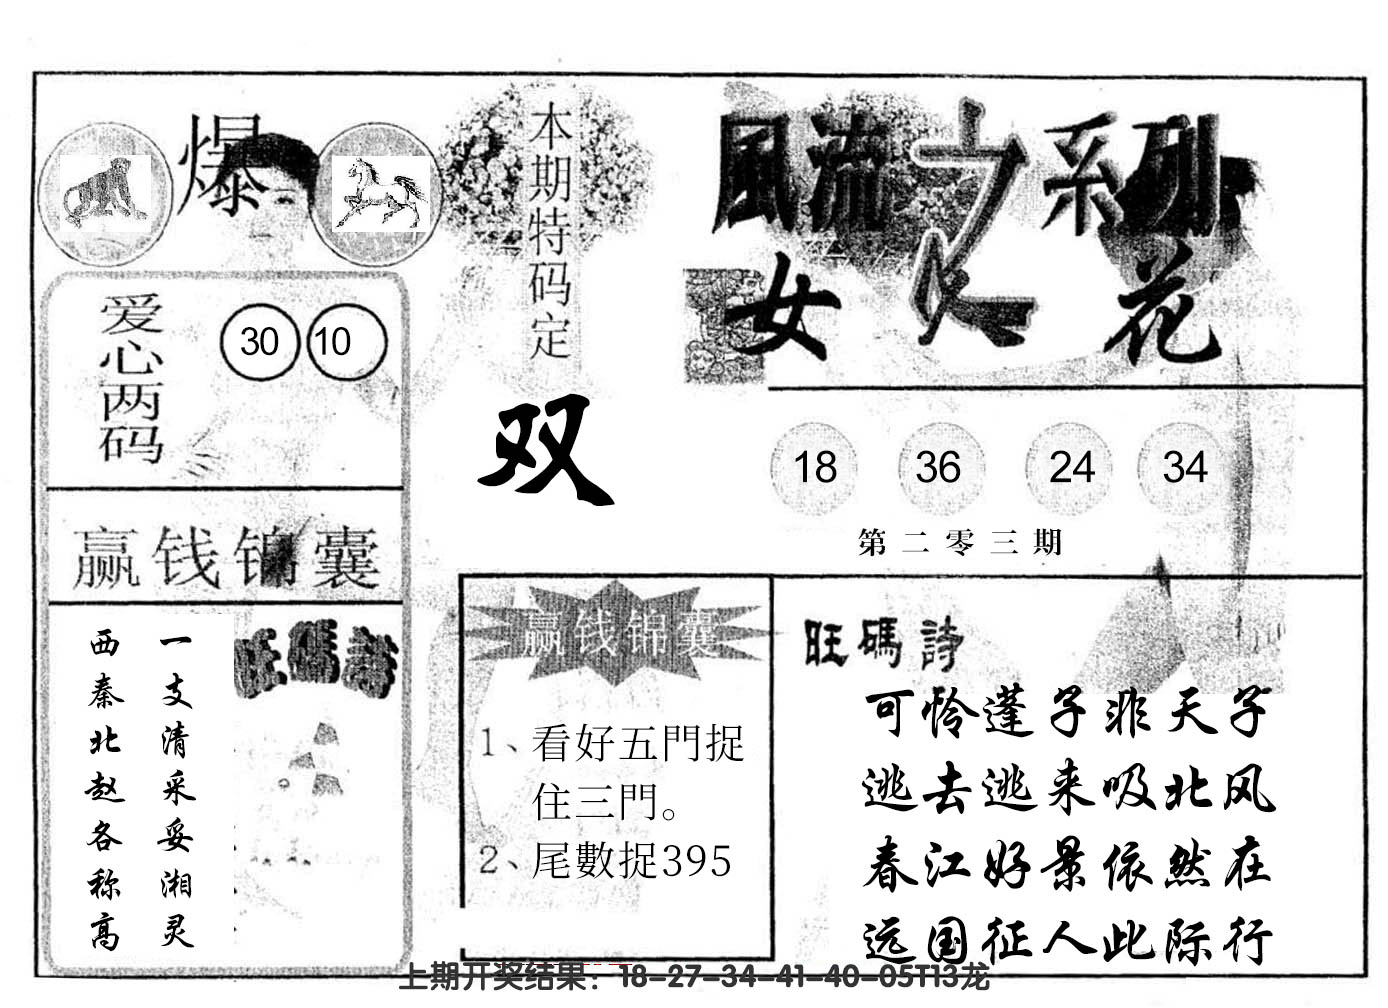 爆
本期特码定
双
風流之系列
女人花
爱心两码
30 10
18 36 24 34
第二零三期
赢钱锦囊
旺碼詩
一支清采妥湘灵
西秦北赵各称高
赢钱锦囊
1、看好五門捉
住三門。
2、尾數捉395
旺碼詩
可怜蓬子非天子
逃去逃来吸北风
春江好景依然在
远国征人此际行
上期开奖结果：18-27-34-41-40-05T13龙